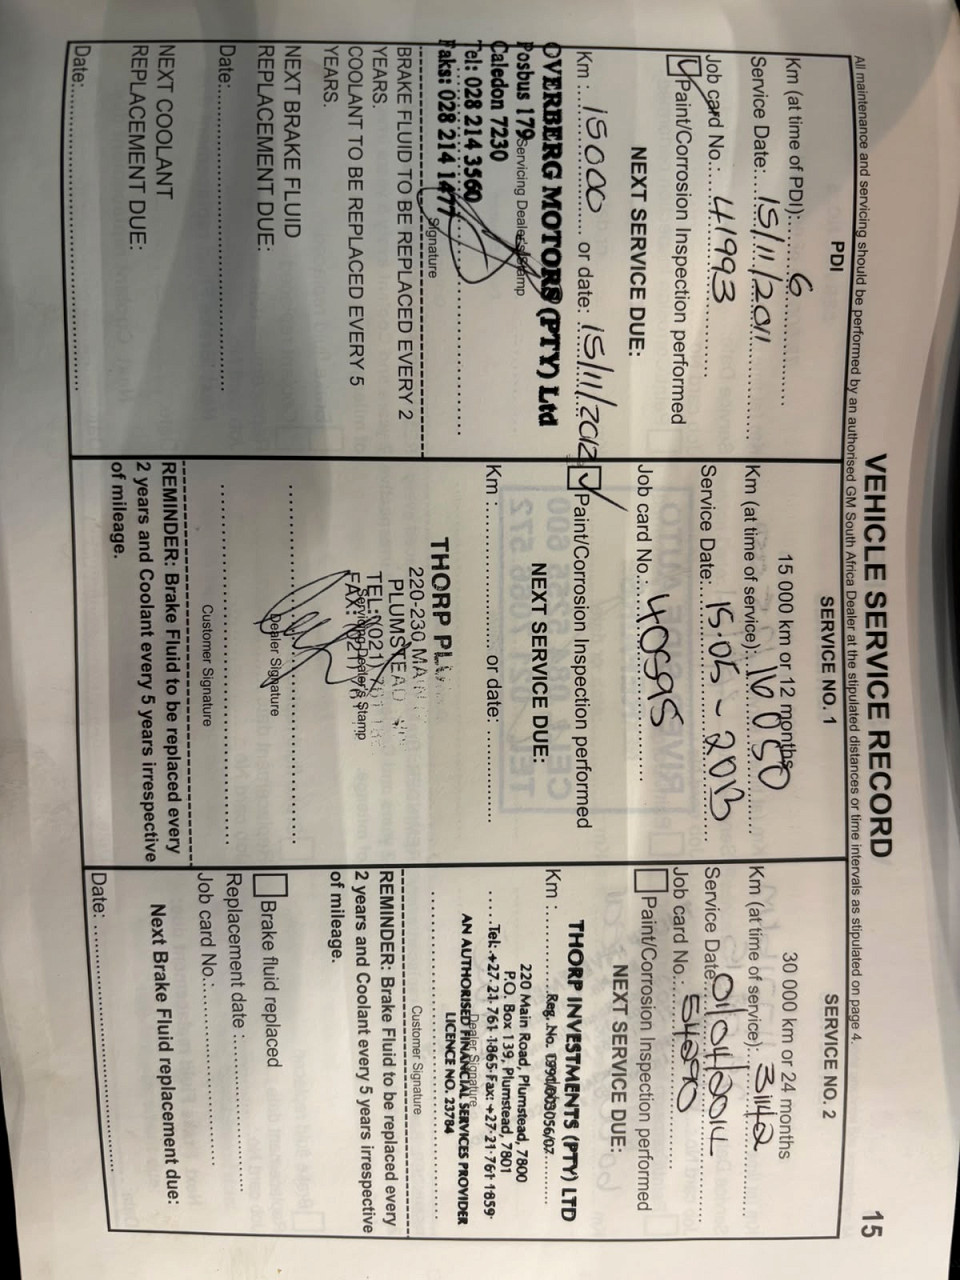 VEHICLE SERVICE RECORD
15
All maintenance and servicing should be performed by an authorised GM South Africa Dealer at the stipulated distances or time intervals as stipulated on page 4.
PDI
Km (at time of PDI): 6
Service Date: 15/11/2011
Job card No.: 41993
Paint/Corrosion Inspection performed
NEXT SERVICE DUE:
Km : 15000 or date: 15/11/2012
OVERBERG MOTORS (PTY) Ltd
Posbus 179
Servicing Dealer's Stamp
Caledon 7230
Tel: 028 214 3560
Faks: 028 214 1477
Signature
BRAKE FLUID TO BE REPLACED EVERY 2
YEARS.
COOLANT TO BE REPLACED EVERY 5
YEARS.
NEXT BRAKE FLUID
REPLACEMENT DUE:
Date:
NEXT COOLANT
REPLACEMENT DUE:
Date:
SERVICE NO. 1
15 000 km or 12 months
Km (at time of service): 16050
Service Date: 15-05-2013
Job card No.: 40595
Paint/Corrosion Inspection performed
NEXT SERVICE DUE:
Km : or date:
THORP
220-230
PLUMSTEAD
TEL: (021)
Servicing Dealer's Stamp
FAX: (021)
Dealer Signature
Customer Signature
REMINDER: Brake Fluid to be replaced every
2 years and Coolant every 5 years irrespective
of mileage.
SERVICE NO. 2
30 000 km or 24 months
Km (at time of service): 31142
Service Date: 01/04/2014
Job card No.:
Paint/Corrosion Inspection performed
NEXT SERVICE DUE:
THORP INVESTMENTS (PTY) LTD
Km : Reg. No.
220 Main Road, Plumstead, 7800
P.O. Box 139, Plumstead, 7801
Tel: +27-21-761-1865 Fax: +27-21-761-1859
Dealer Signature
AN AUTHORISED FINANCIAL SERVICES PROVIDER
LICENCE NO. 23784
Customer Signature
REMINDER: Brake Fluid to be replaced every
2 years and Coolant every 5 years irrespective
of mileage.
Brake fluid replaced
Replacement date :
Job card No.:
Next Brake Fluid replacement due:
Date: